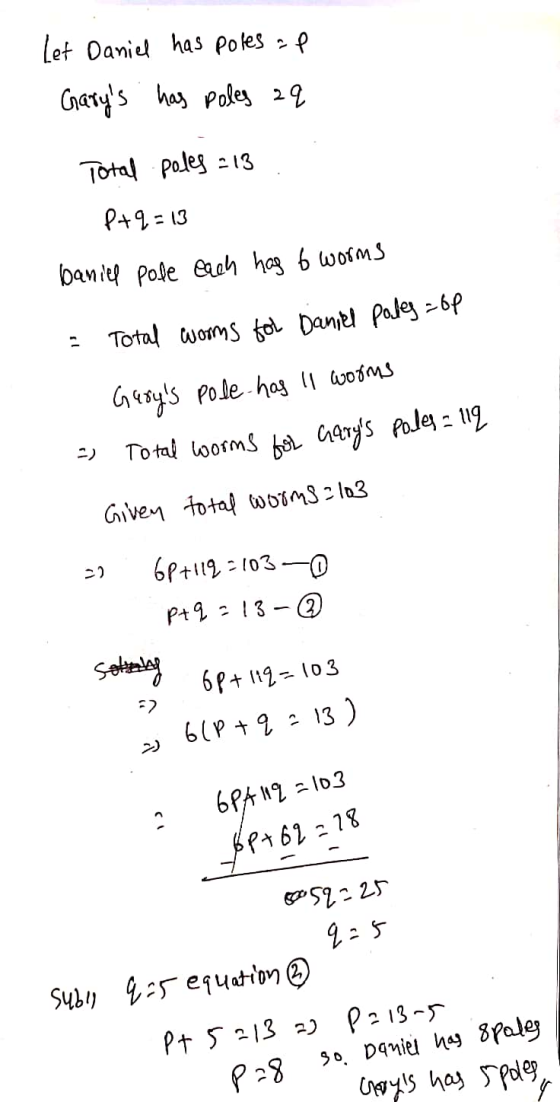 Let Daniel has poles = p
Gary's has poles = q
Total poles = 13
P+q = 13
Daniel pole each has 6 worms
= Total worms for Daniel poles = 6p
Gary's pole has 11 worms
=> Total worms for Gary's poles = 11q
Given total worms = 103
=> 6P+11q = 103 — ①
P+q = 13 — ②
Solving
6p + 11q = 103
=>
=> 6(P + q = 13)
= 6P+11q = 103
6p+6q = 78
5q = 25
q = 5
Sub q=5 equation ②
P+ 5 = 13 => P = 13-5
P = 8 so. Daniel has 8 poles
Gary's has 5 poles